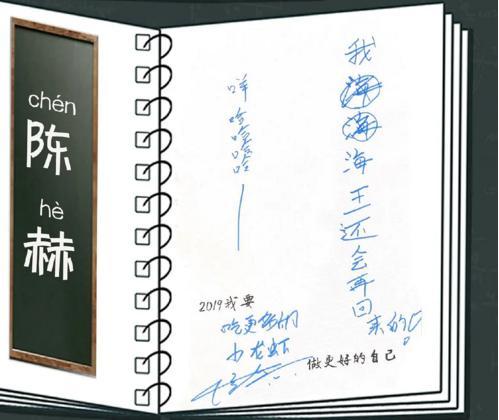 chén
陈
hè
赫
我海海海王还会再回来的!
咩哈哈哈哈哈——
2019我要
吃更多的
小龙虾
做更好的自己